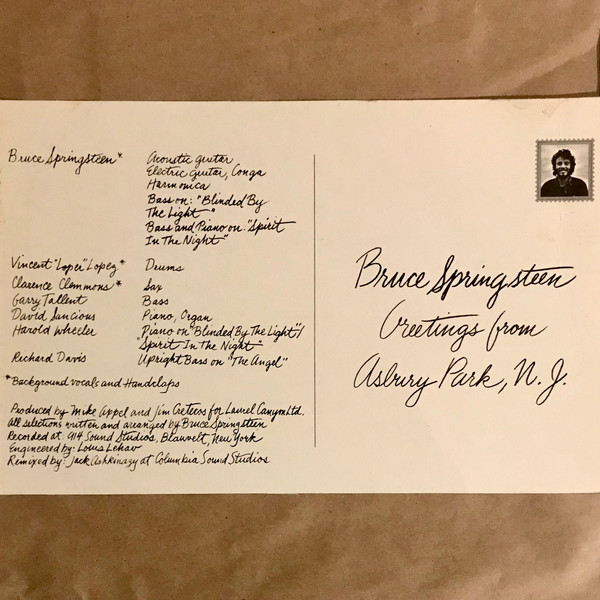 Bruce Springsteen* Acoustic guitar
Electric guitar, Conga
Harmonica
Bass on: "Blinded By
The Light"
Bass and Piano on: "Spirit
In The Night"
Vincent "Loper" Lopez* Drums
Clarence Clemmons* Sax
Garry Tallent Bass
David Sancious Piano, Organ
Harold Wheeler Piano on "Blinded By The Light"/
"Spirit In The Night"
Richard Davis Upright Bass on "The Angel"
*Background vocals and Handclaps
Produced by Mike Appel and Jim Cretecos for Laurel Canyon Ltd.
All selections written and arranged by Bruce Springsteen
Recorded at 914 Sound Studios, Blauvelt, New York
Engineered by: Louis Lahav
Remixed by: Jack Ashkinazy at Columbia Sound Studios
Bruce Springsteen
Greetings from
Asbury Park, N.J.